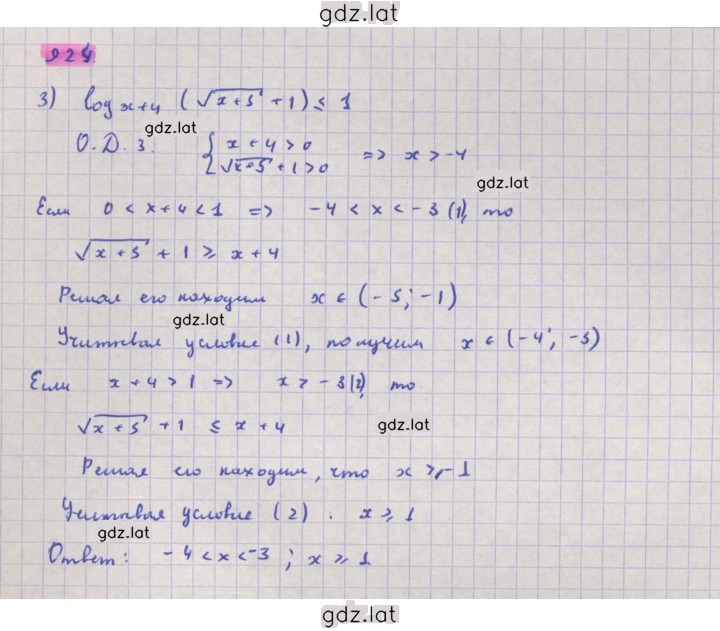 gdz.lat
924
3) log x+4 (√x+5 + 1) ≤ 1
gdz.lat
О.Д.З. { x + 4 > 0
√x+5 + 1 > 0 => x > -4
gdz.lat
Если 0 < x+4 < 1 => -4 < x < -3 (1), то
√x+5 + 1 ≥ x+4
Решая его находим x ∈ (-5; -1)
gdz.lat
Учитывая условие (1), получим x ∈ (-4; -3)
Если x+4 > 1 => x > -3 (2), то
√x+5 + 1 ≤ x+4
gdz.lat
Решая его находим, что x ≥ -1
Учитывая условие (2). x ≥ 1
gdz.lat
Ответ: -4 < x < -3 ; x ≥ 1
gdz.lat